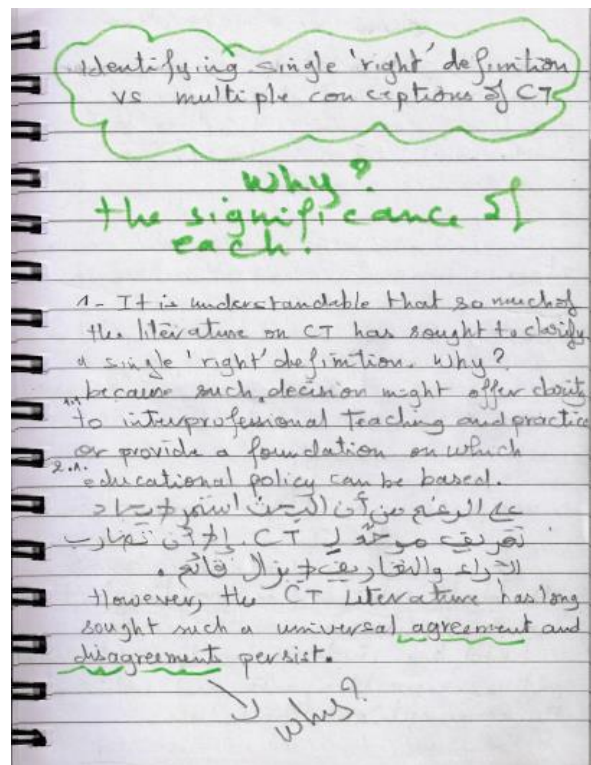 Identifying single 'right' definition
vs multiple conceptions of CT
Why?
the significance of
each!
1- It is understandable that so much of
the literature on CT has sought to clarify
a single 'right' definition. Why?
because such decision might offer clarity
1.1
to interprofessional teaching and practice
or provide a foundation on which
2.1.
educational policy can be based.
على الرغم من أن البحث استمر لإيجاد
تعريف موحد لـ CT. إلا أن تضارب
الآراء والتعاريف لا يزال قائم.
However, the CT literature has long
sought such a universal agreement and
disagreements persist.
why?